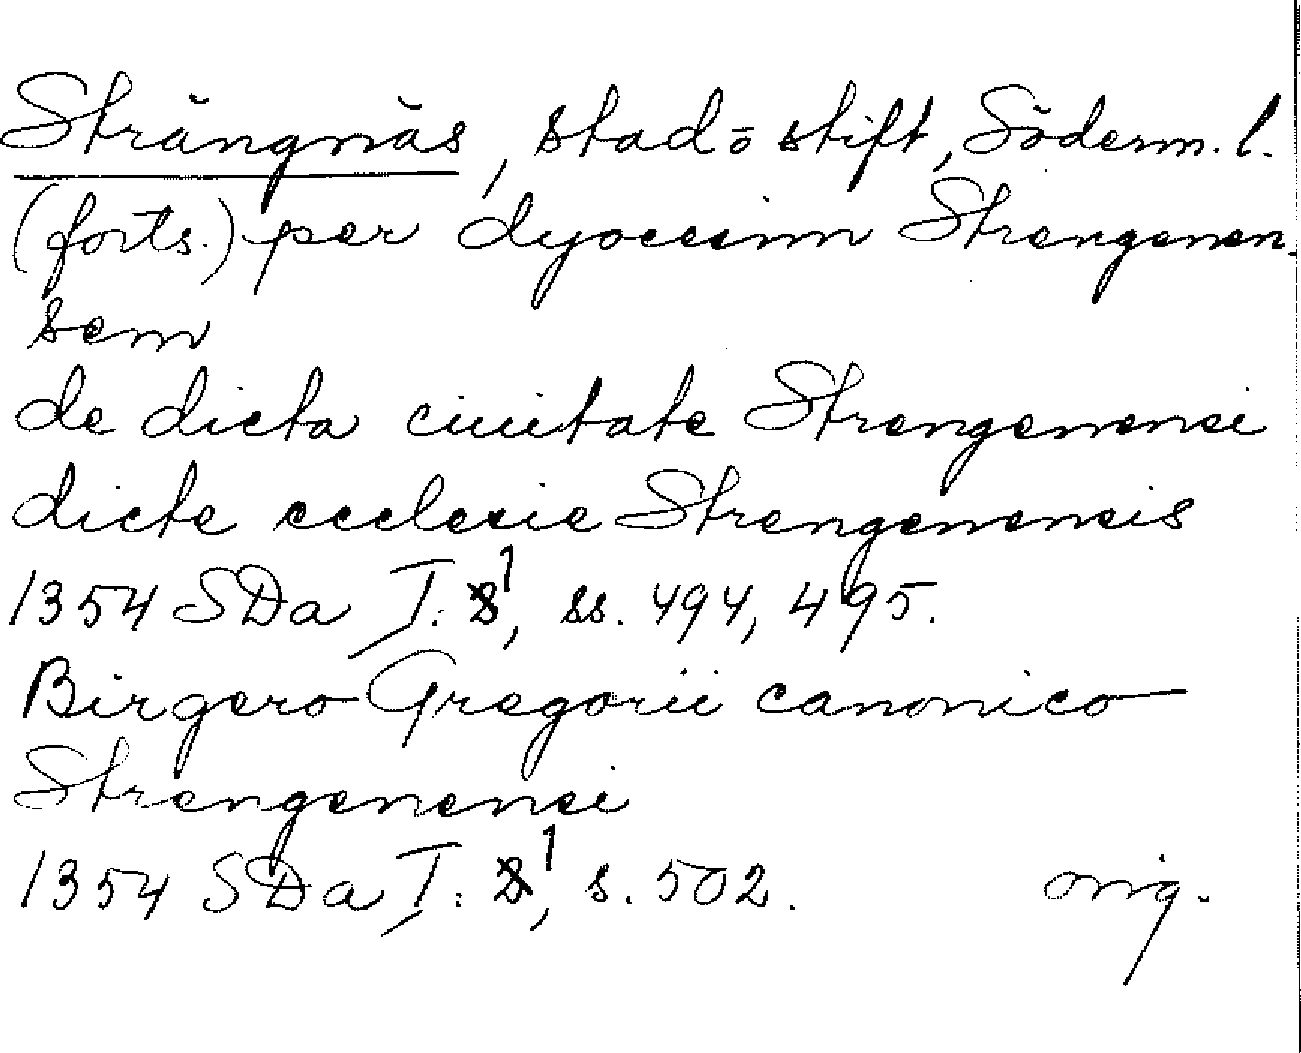 Strängnäs, stad o stift, Söderm. l.
(forts.) per dyocesim Strengenen-
sem
de dicta ciuitate Strengenensi
dicte ecclesie Strengenensis
1354 SDa I: 1, ss. 494, 495.
Birgero Gregorii canonico
Strengenensi
1354 SDa I: 1, s. 502. orig.